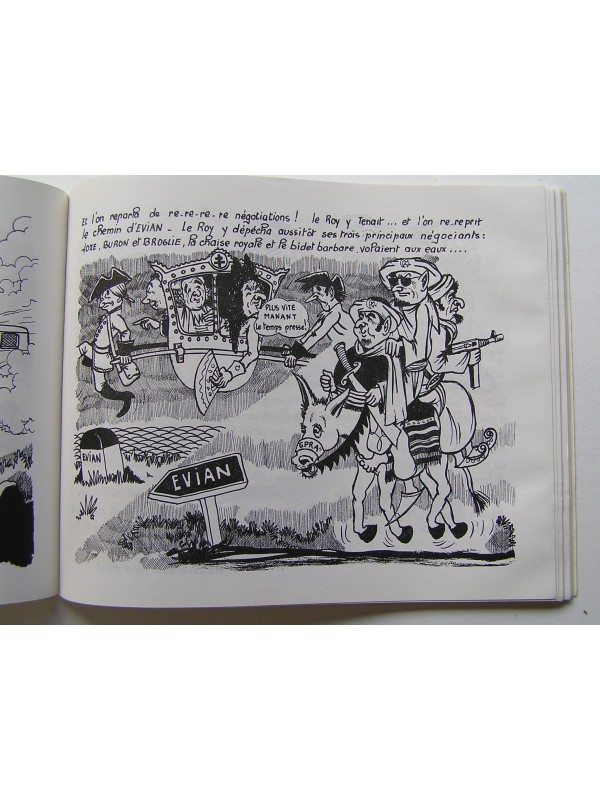 Et l'on reparla de re-re-re-re négotiations! le Roy y Tenait... et l'on re-reprit
le chemin d'EVIAN_ Le Roy y dépécha aussitôt ses trois principaux négociants:
JOXE, BURON et BROGLIE, la chaise royale et le bidet barbare, volaient aux eaux....
PLUS VITE
MANANT
Le temps presse!
GPRA
EVIAN
EVIAN